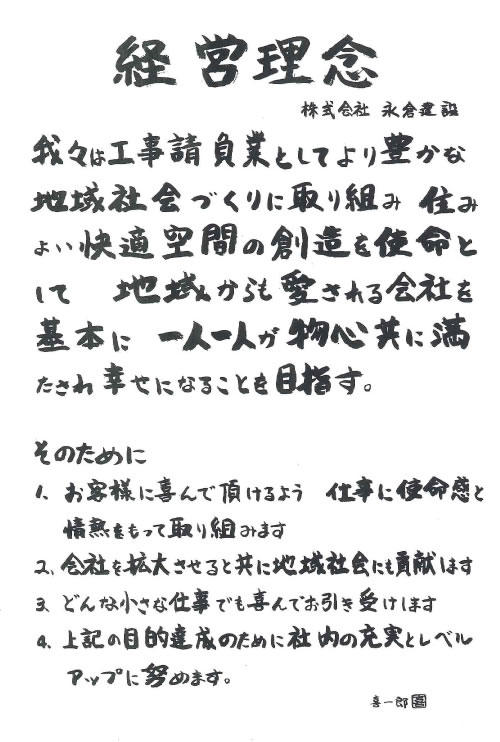 経営理念
株式会社 永倉建設
我々は工事請負業としてより豊かな
地域社会づくりに取り組み 住み
よい快適空間の創造を使命と
して 地域からも愛される会社を
基本に 一人一人が物心共に満
たされ幸せになることを目指す。
そのために
1、お客様に喜んで頂けるよう 仕事に使命感と
情熱をもって取り組みます
2、会社を拡大させると共に地域社会にも貢献します
3、どんな小さな仕事でも喜んでお引き受けします
4、上記の目的達成のために社内の充実とレベル
アップに努めます。
喜一郎